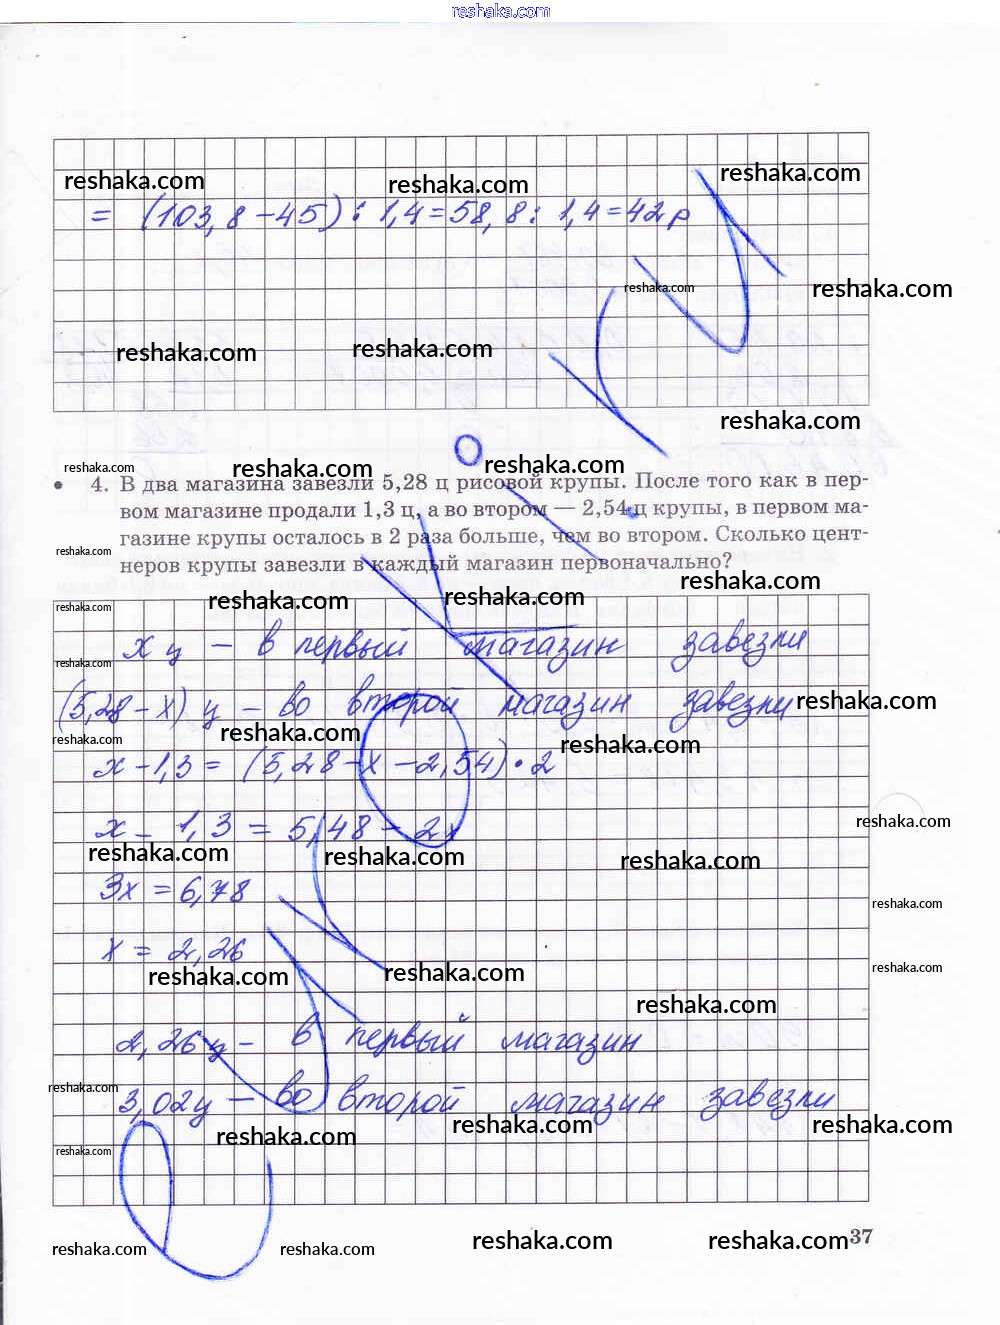 reshaka.com
reshaka.com reshaka.com reshaka.com
= (103,8-45) : 1,4=58,8: 1,4=42 р
reshaka.com reshaka.com
reshaka.com reshaka.com
reshaka.com
reshaka.com reshaka.com reshaka.com
• 4. В два магазина завезли 5,28 ц рисовой крупы. После того как в пер-
вом магазине продали 1,3 ц, а во втором — 2,54 ц крупы, в первом ма-
газине крупы осталось в 2 раза больше, чем во втором. Сколько цент-
reshaka.com
неров крупы завезли в каждый магазин первоначально?
reshaka.com reshaka.com reshaka.com
reshaka.com
х ц – в первый магазин завезли
reshaka.com
(5,28 – х) ц – во второй магазин завезли
reshaka.com
reshaka.com reshaka.com reshaka.com
х – 1,3 = (5,28 – х – 2,54) • 2
х – 1,3 = 5,48 – 2х
reshaka.com
reshaka.com reshaka.com reshaka.com
3х = 6,78
reshaka.com
х = 2,26
reshaka.com reshaka.com reshaka.com
reshaka.com
2,26 ц – в первый магазин
reshaka.com
3,02 ц – во второй магазин завезли
reshaka.com reshaka.com reshaka.com
reshaka.com
reshaka.com reshaka.com reshaka.com reshaka.com
37